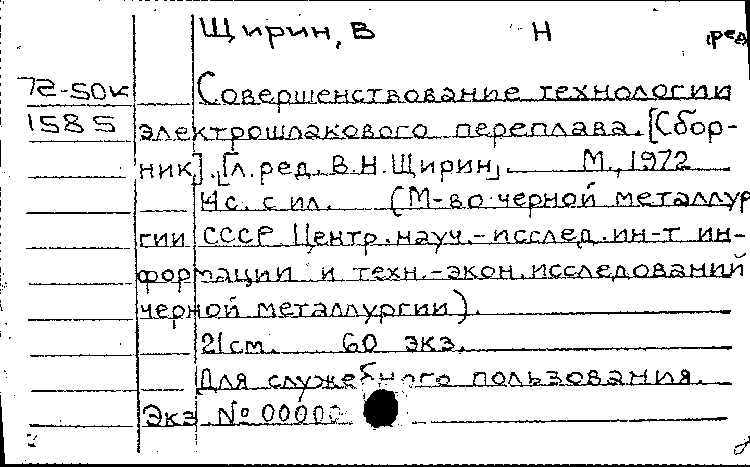 Щирин, В Н ред
72-50к Совершенствование технологии
1585 электрошлакового переплава. [Сбор-
ник]. [Гл. ред. В.Н. Щирин]. М., 1972
14 с. с ил. (М-во черной металлур
гии СССР Центр. науч.-исслед. ин-т ин-
формации и техн.-экон. исследований
черной металлургии).
21 см. 60 экз.
Для служебного пользования.
Экз № 00000